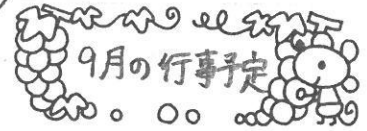 9月の行事予定